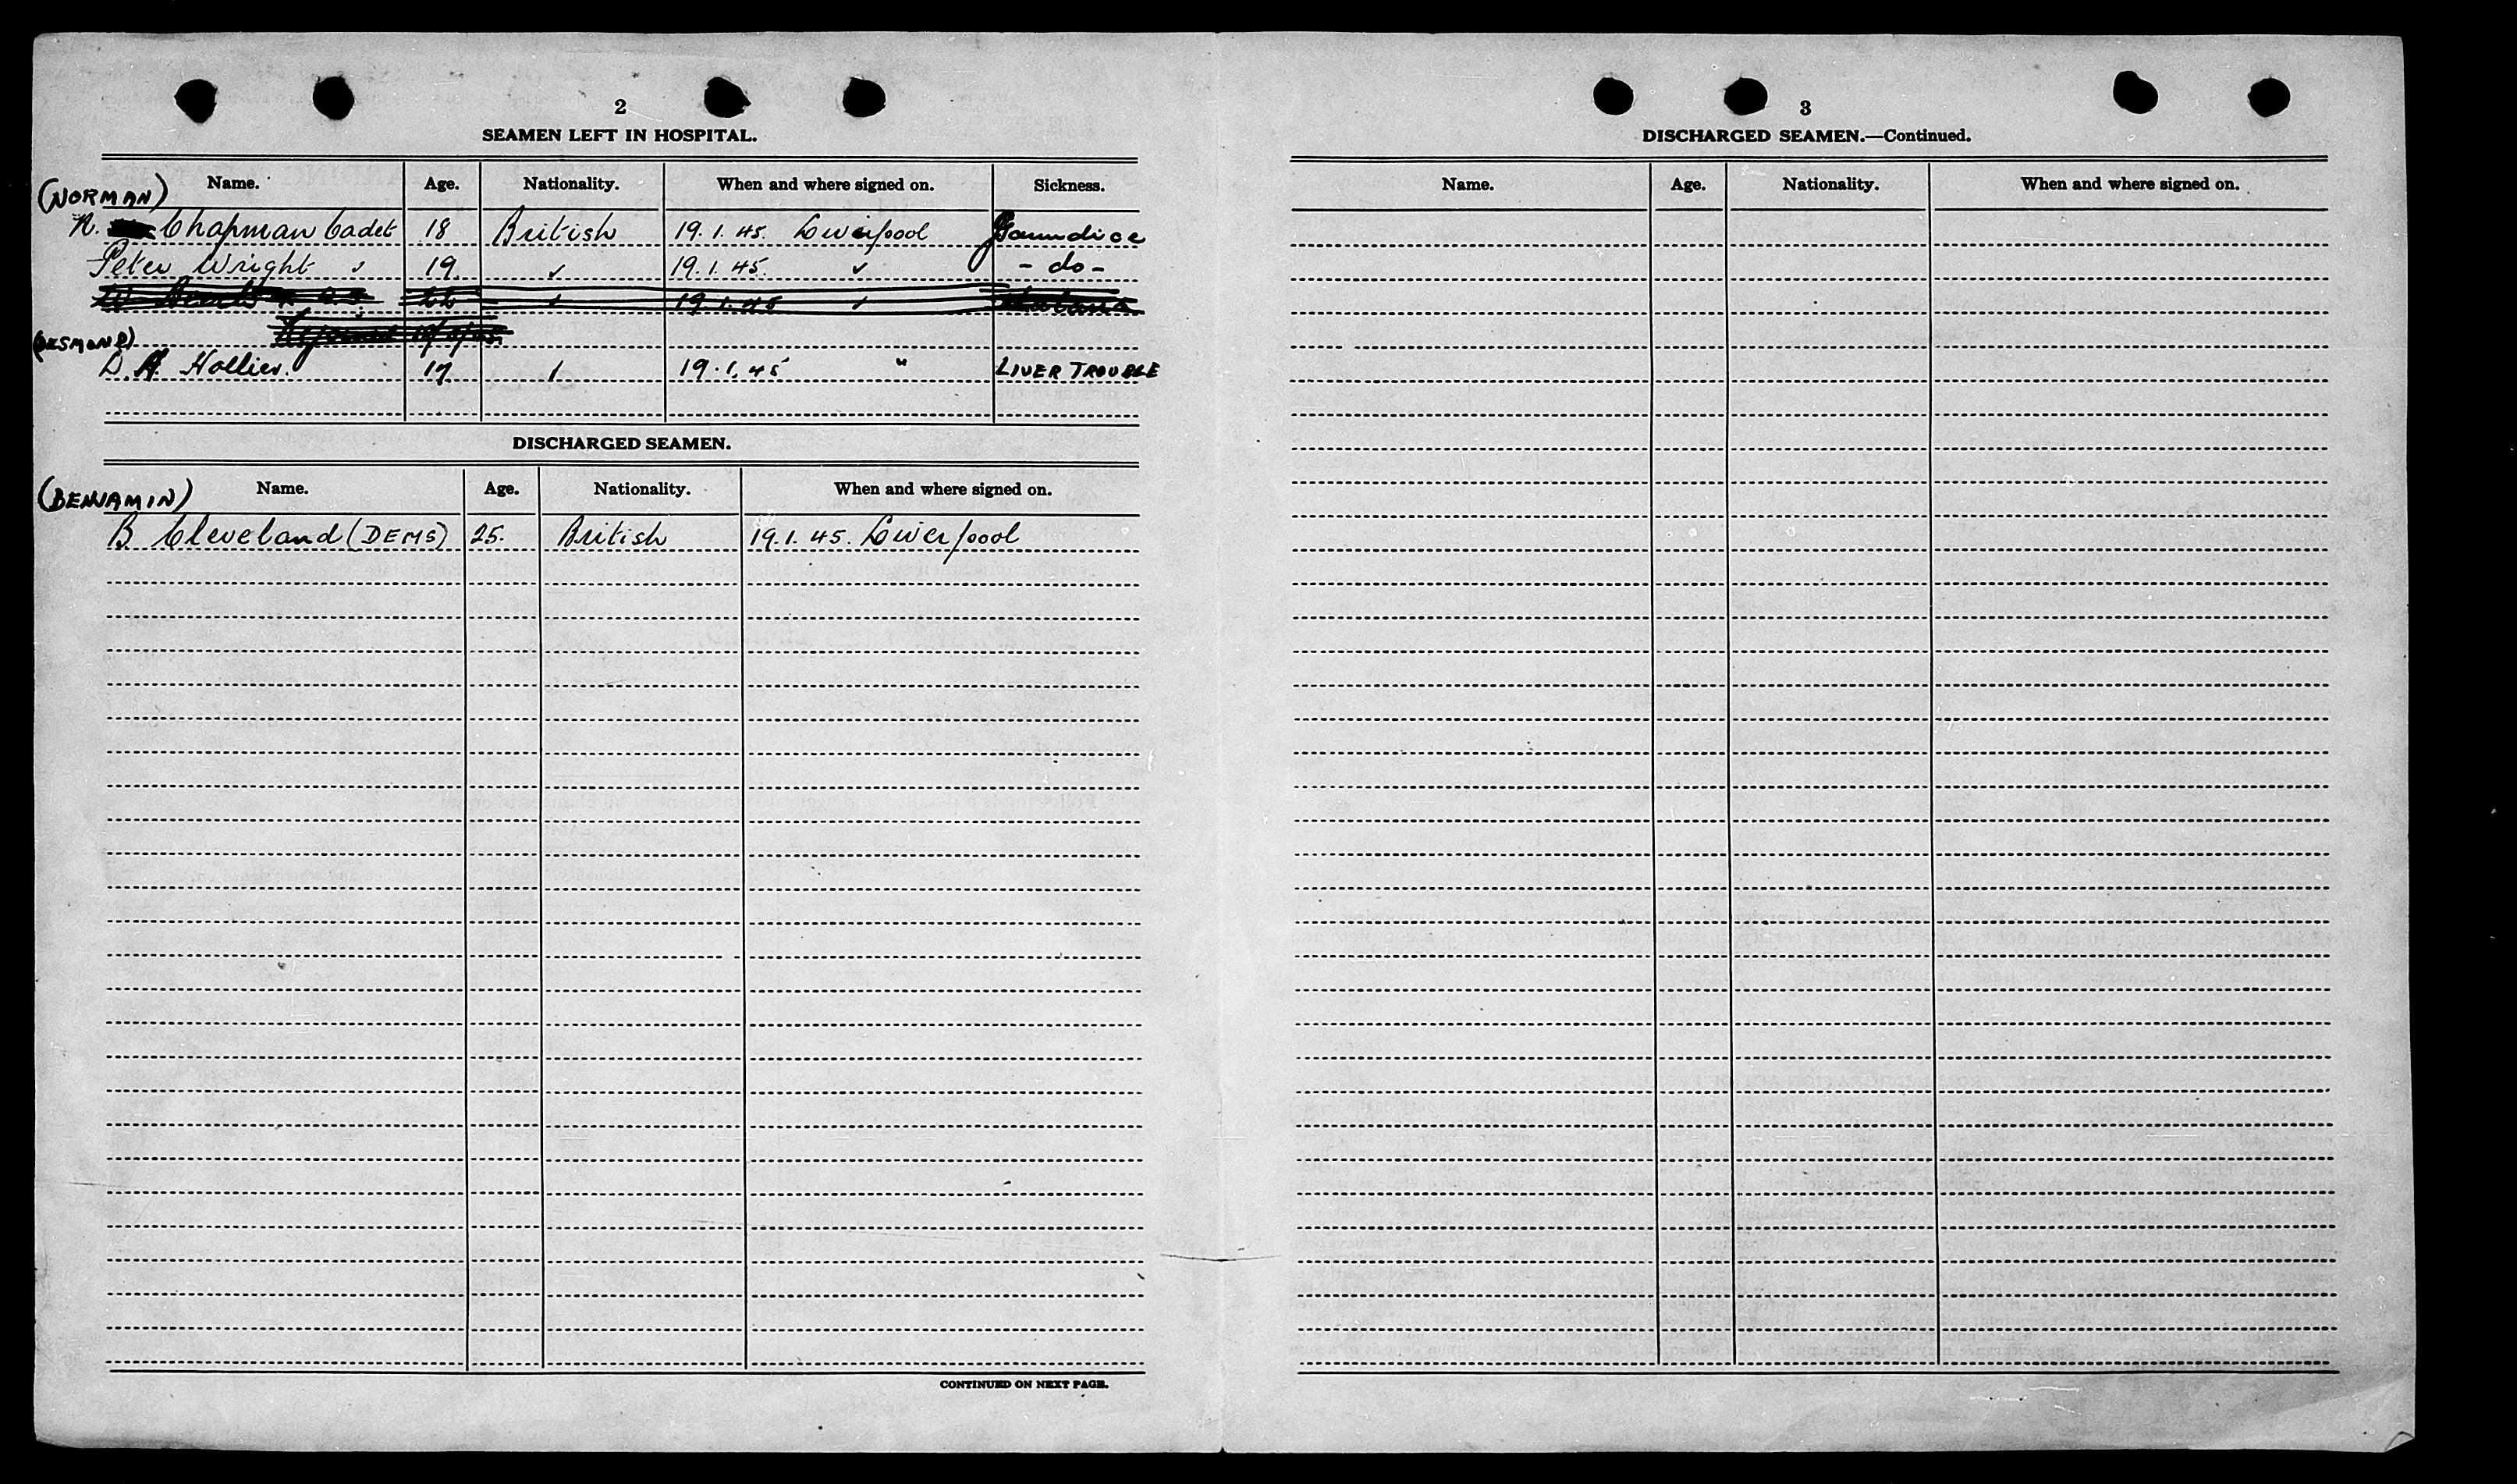 2
SEAMEN LEFT IN HOSPITAL.
Name. Age. Nationality. When and where signed on. Sickness.
(NORMAN)
N. Chapman Cadet 18 British 19.1.45. Liverpool Jaundice
Peter Wright " 19 " 19.1.45. " - do -
W 22 " 19.1.45 "
Rejoined
(DESMOND)
D. A. Hollier. 17 " 19.1.45 " LIVER TROUBLE
DISCHARGED SEAMEN.
Name. Age. Nationality. When and where signed on.
(BENJAMIN)
B Cleveland (DEMS) 25. British 19.1.45. Liverpool
CONTINUED ON NEXT PAGE.
3
DISCHARGED SEAMEN.—Continued.
Name. Age. Nationality. When and where signed on.